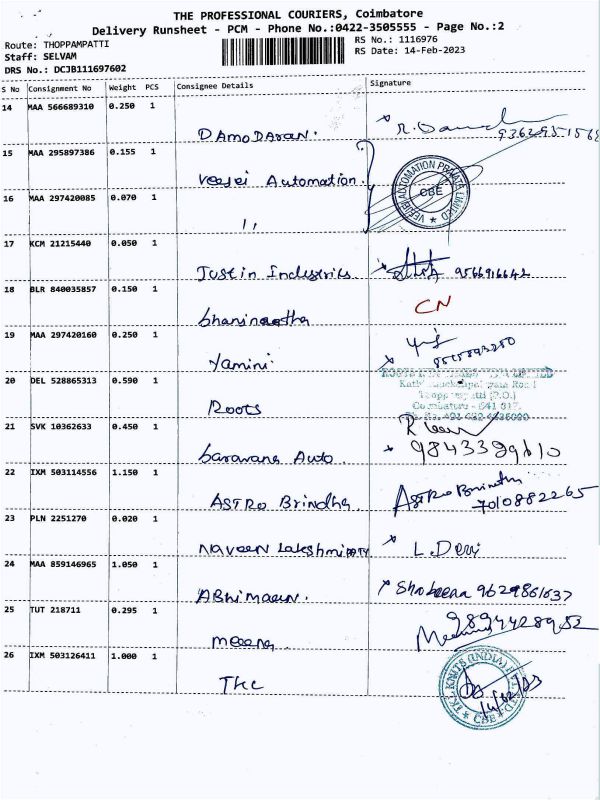 THE PROFESSIONAL COURIERS, Coimbatore
Delivery Runsheet - PCM - Phone No.:0422-3505555 - Page No.:2
Route: THOPPAMPATTI
RS No.: 1116976
Staff: SELVAM
RS Date: 14-Feb-2023
DRS No.: DCJB111697602
S No Consignment No Weight PCS Consignee Details Signature
14 MAA 566689310 0.250 1
DAMODARAN.
15 MAA 295897386 0.155 1
Veejei Automation.
CBE
16 MAA 297420085 0.070 1
17 KCM 21215440 0.050 1
Justin Industries 9566916642
18 BLR 840035857 0.150 1
CN
19 MAA 297420160 0.250 1
Yamini
20 DEL 528865313 0.590 1
Roots
21 SVK 10362633 0.450 1
Saravana Auto.
22 IXM 503114556 1.150 1
ASTRO Brindha. Astro Brindha
7010882265
23 PLN 2251270 0.020 1
Naveen Lakshmi L. Devi
24 MAA 859146965 1.050 1
Shobeena 9629861637
25 TUT 218711 0.295 1
Meena
26 IXM 503126411 1.000 1
TKC
CBE